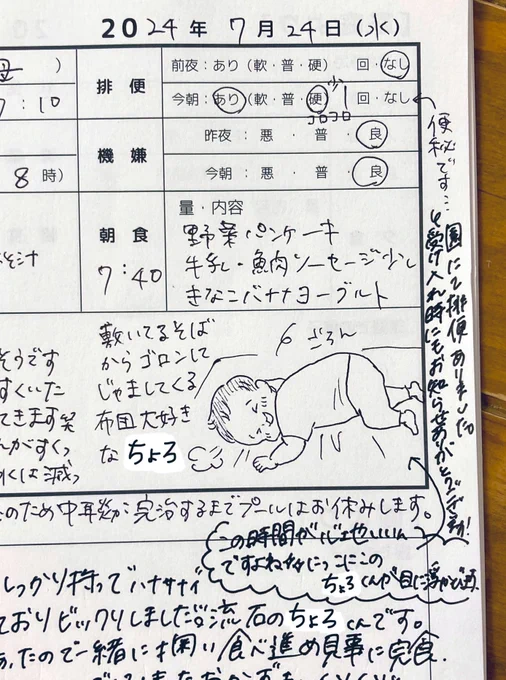 2024年 7月24日(水)
母 )
排便
前夜：あり(軟・普・硬) 回・なし
今朝：あり(軟・普・硬) 少し 1回・なし
コロコロ
7:10
機嫌
昨夜：悪・普・良
今朝：悪・普・良
8時)
朝食
7:40
量・内容
野菜パンケーキ
牛乳・魚肉ソーセージ少し
きなこバナナヨーグルト
そ汁
便秘です…
園にて排便ありました
受け入れ時にもお知らせありがとうございます!
敷いてるそば
からゴロンして
じゃましてくる
布団大好き
な ちょろ
ごろん
そうです
すくいた
てきます笑
んがすくっ
くは減っ
のため中耳炎が完治するまでプールはお休みします。
この時間が心地いいん
ですよね にっこにこの
ちょろくんが目に浮かび
しっかり持って
ておりビックリしました 流石のちょろくんです。
たので一緒に 食べ進め見事に完食。